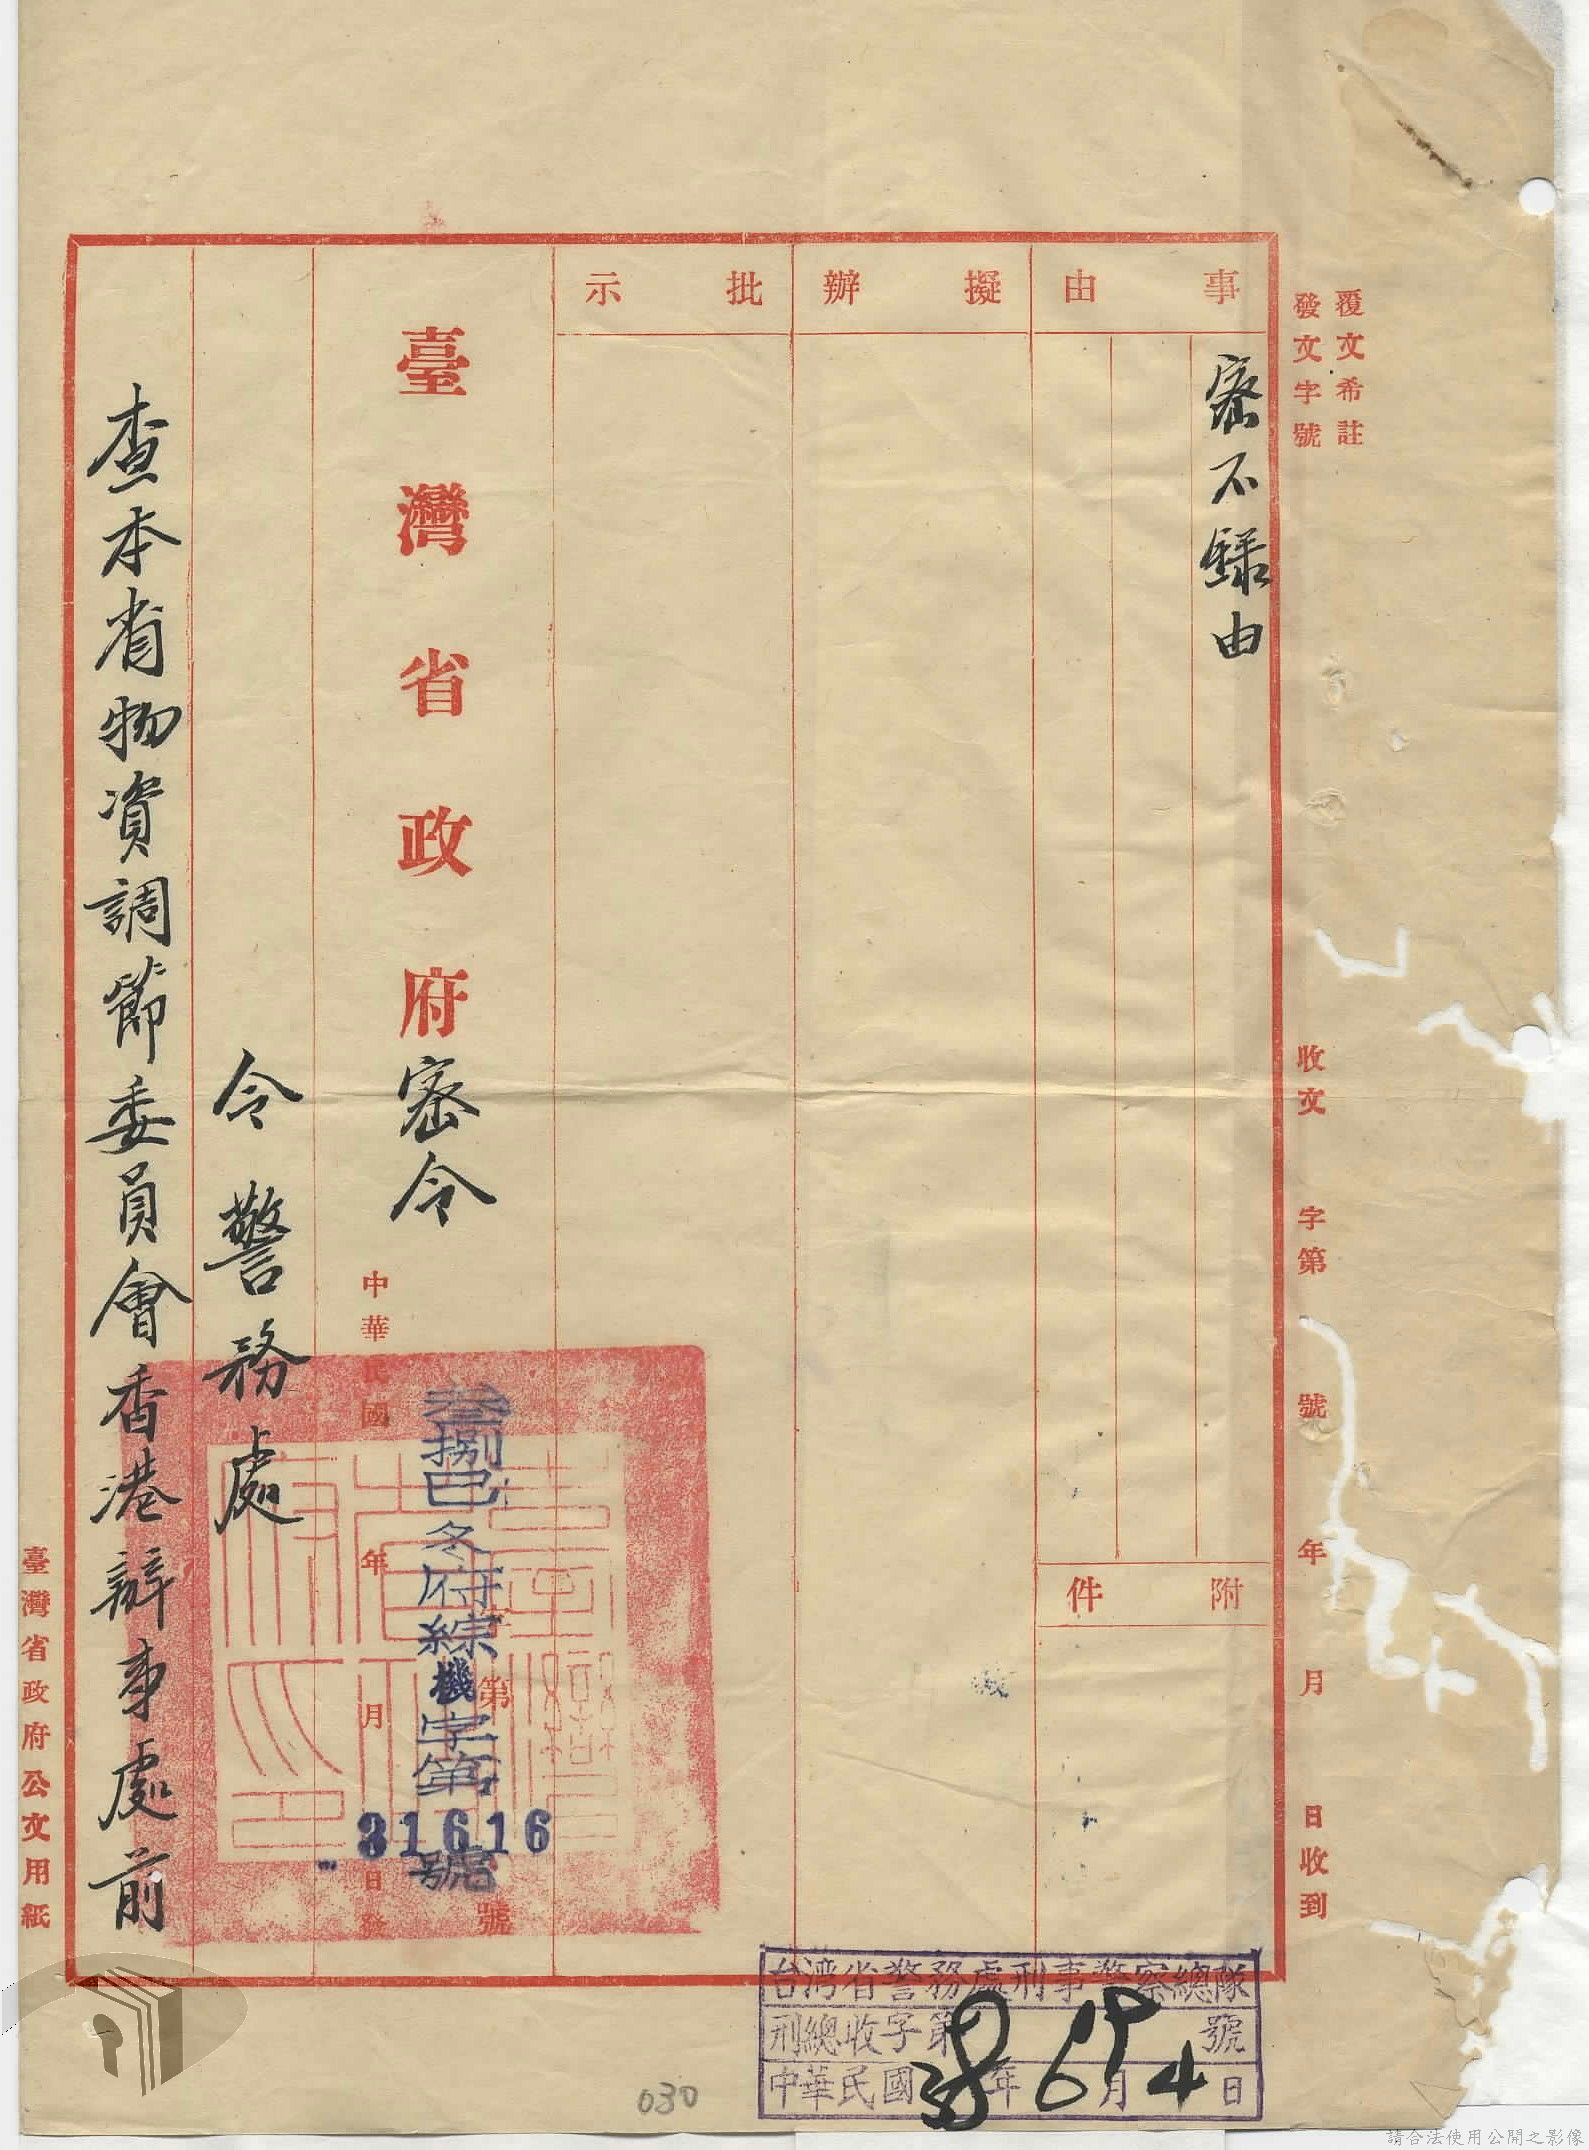 覆文希註
發文字號
收文　字第　號　年　月　日收到
事由
密不錄由
附件
擬辦
批示
臺灣省政府密令
中華民國　年　月　日發
第　號
叁捌巳冬府綜機字第31616號
令警務處
查本省物資調節委員會香港辦事處前
臺灣省政府公文用紙
台湾省警務處刑事警察總隊
刑總收字第　號
中華民國38年6月4日
030
請合法使用公開之影像